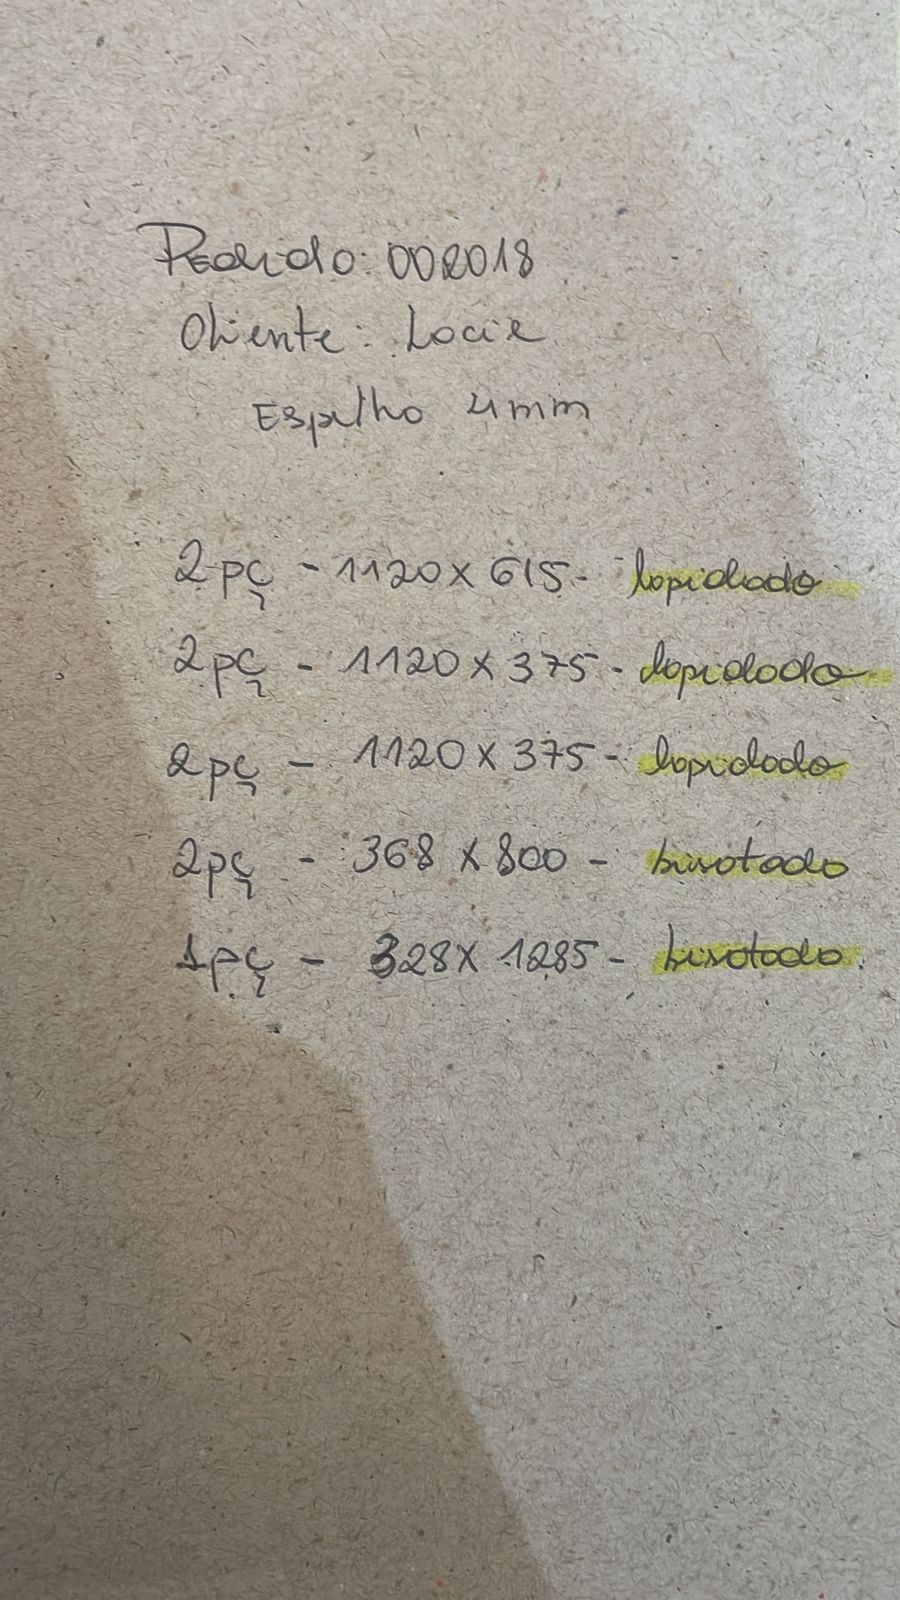 Pedido: 002018
Cliente: Locie
Espelho 4mm
2 pç - 1120 x 615 - lapidado
2 pç - 1120 x 375 - lapidado
2 pç - 1120 x 375 - lapidado
2 pç - 368 x 800 - bisotado
1 pç - 328 x 1285 - bisotado.